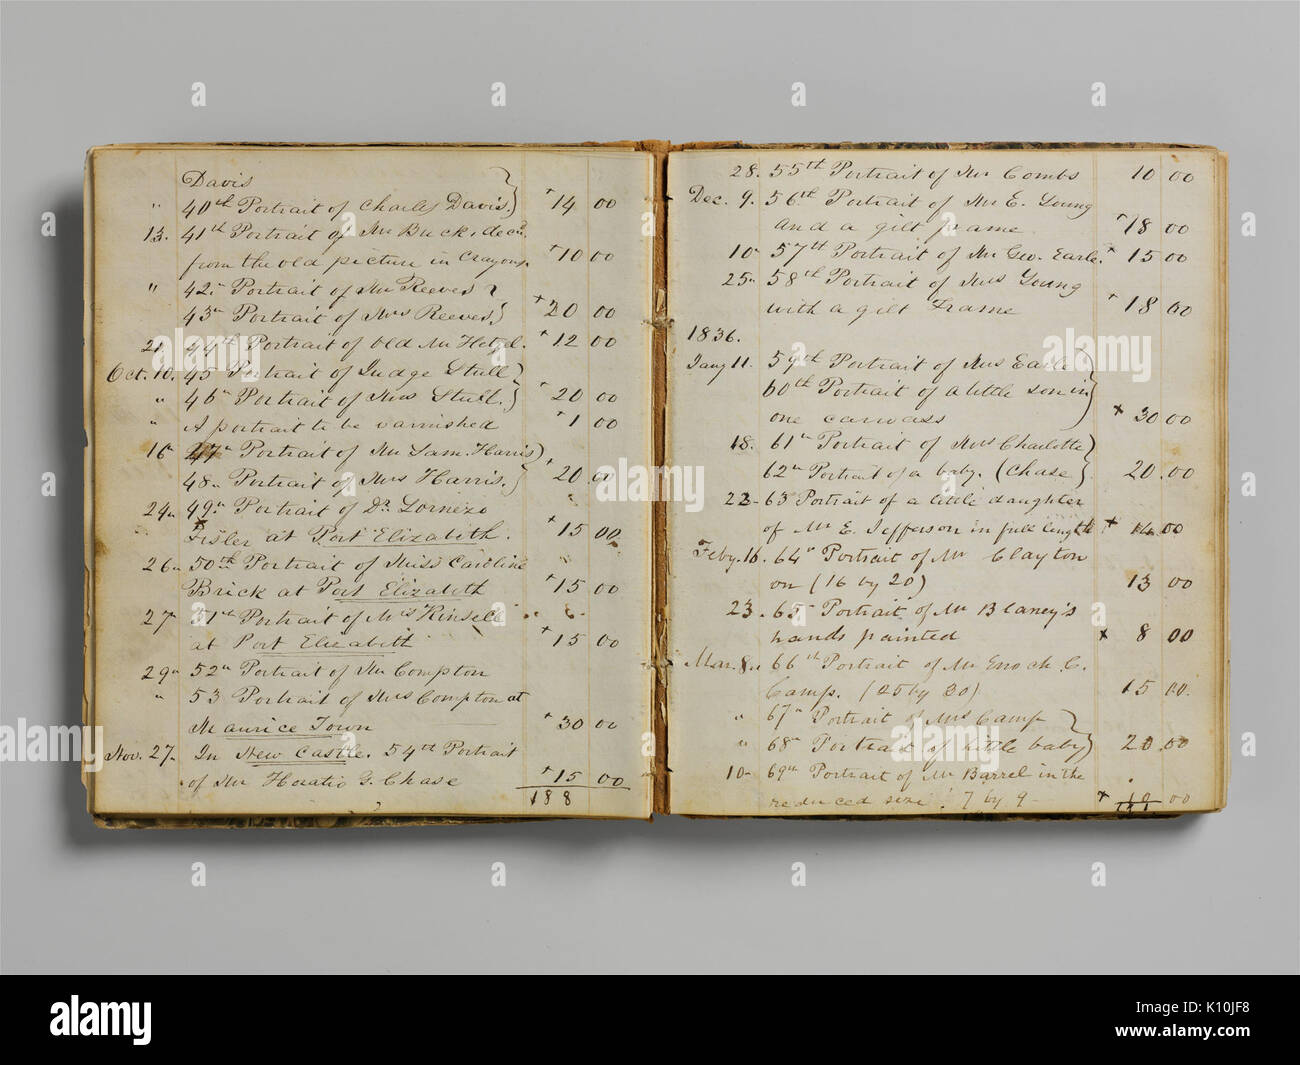 Davis
" 40th Portrait of Charles Davis. + 14 00
13. 41th Portrait of Mr Buck, decd.
from the old picture in Crayons. + 10 00
" 42" Portrait of Mr Reeves
43" Portrait of Mrs Reeves, + 20 00
21 44th Portrait of Old Mr Hetzel. + 12 00
Oct. 10. 45 Portrait of Judge Stull
" 46" Portrait of Mrs Stull. + 20 00
" A portrait to be varnished + 1 00
16" 47" Portrait of Mr Sam. Harris
48" Portrait of Mrs Harris. + 20 00
24" 49" Portrait of Dr Lorenzo
Fisler at Port Elizabeth. + 15 00
26" 50th Portrait of Miss Caroline
Brick at Port Elizabeth + 15 00
27" 51th Portrait of Mrs Kinsell
at Port Elizabeth + 15 00
29" 52" Portrait of Mr Compton
" 53 Portrait of Mrs Compton at
Maurice Town + 30 00
Nov. 27. In New Castle. 54th Portrait
of Mr Horatio G. Chase + 15 00
188
28. 55th Portrait of Mr Combs 10 00
Dec. 9. 56th Portrait of Mr E. Young
and a gilt frame + 18 00
10" 57th Portrait of Mr Geo. Earle. + 15 00
25" 58th Portrait of Mrs Young
with a gilt Frame + 18 00
1836.
Jany 11. 59th Portrait of Mrs Earle
60th Portrait of a little son in
one canvass + 30 00
18. 61th Portrait of Mrs Charlotte
62" Portrait of a baby. (Chase) 20.00
22" 63 Portrait of a little daughter
of Mr E. Jefferson in full length + 14.00
Feby. 16. 64" Portrait of Mr Clayton
on (16 by 20) 13 00
23. 65" Portrait of Mr Blaney's
hands painted + 8 00
Mar. 8" 66th Portrait of Mr Enoch C.
Camp. (25 by 30) 15 00.
" 67" Portrait of Mrs Camp
" 68" Portrait of little baby 20.00
10" 69th Portrait of Mr Barrel in the
reduced size! 7 by 9 + 10 00
a a a a
a a a a
a
a a
a
a a a a
a a a a
alamy
Image ID: K10JF8
www.alamy.com